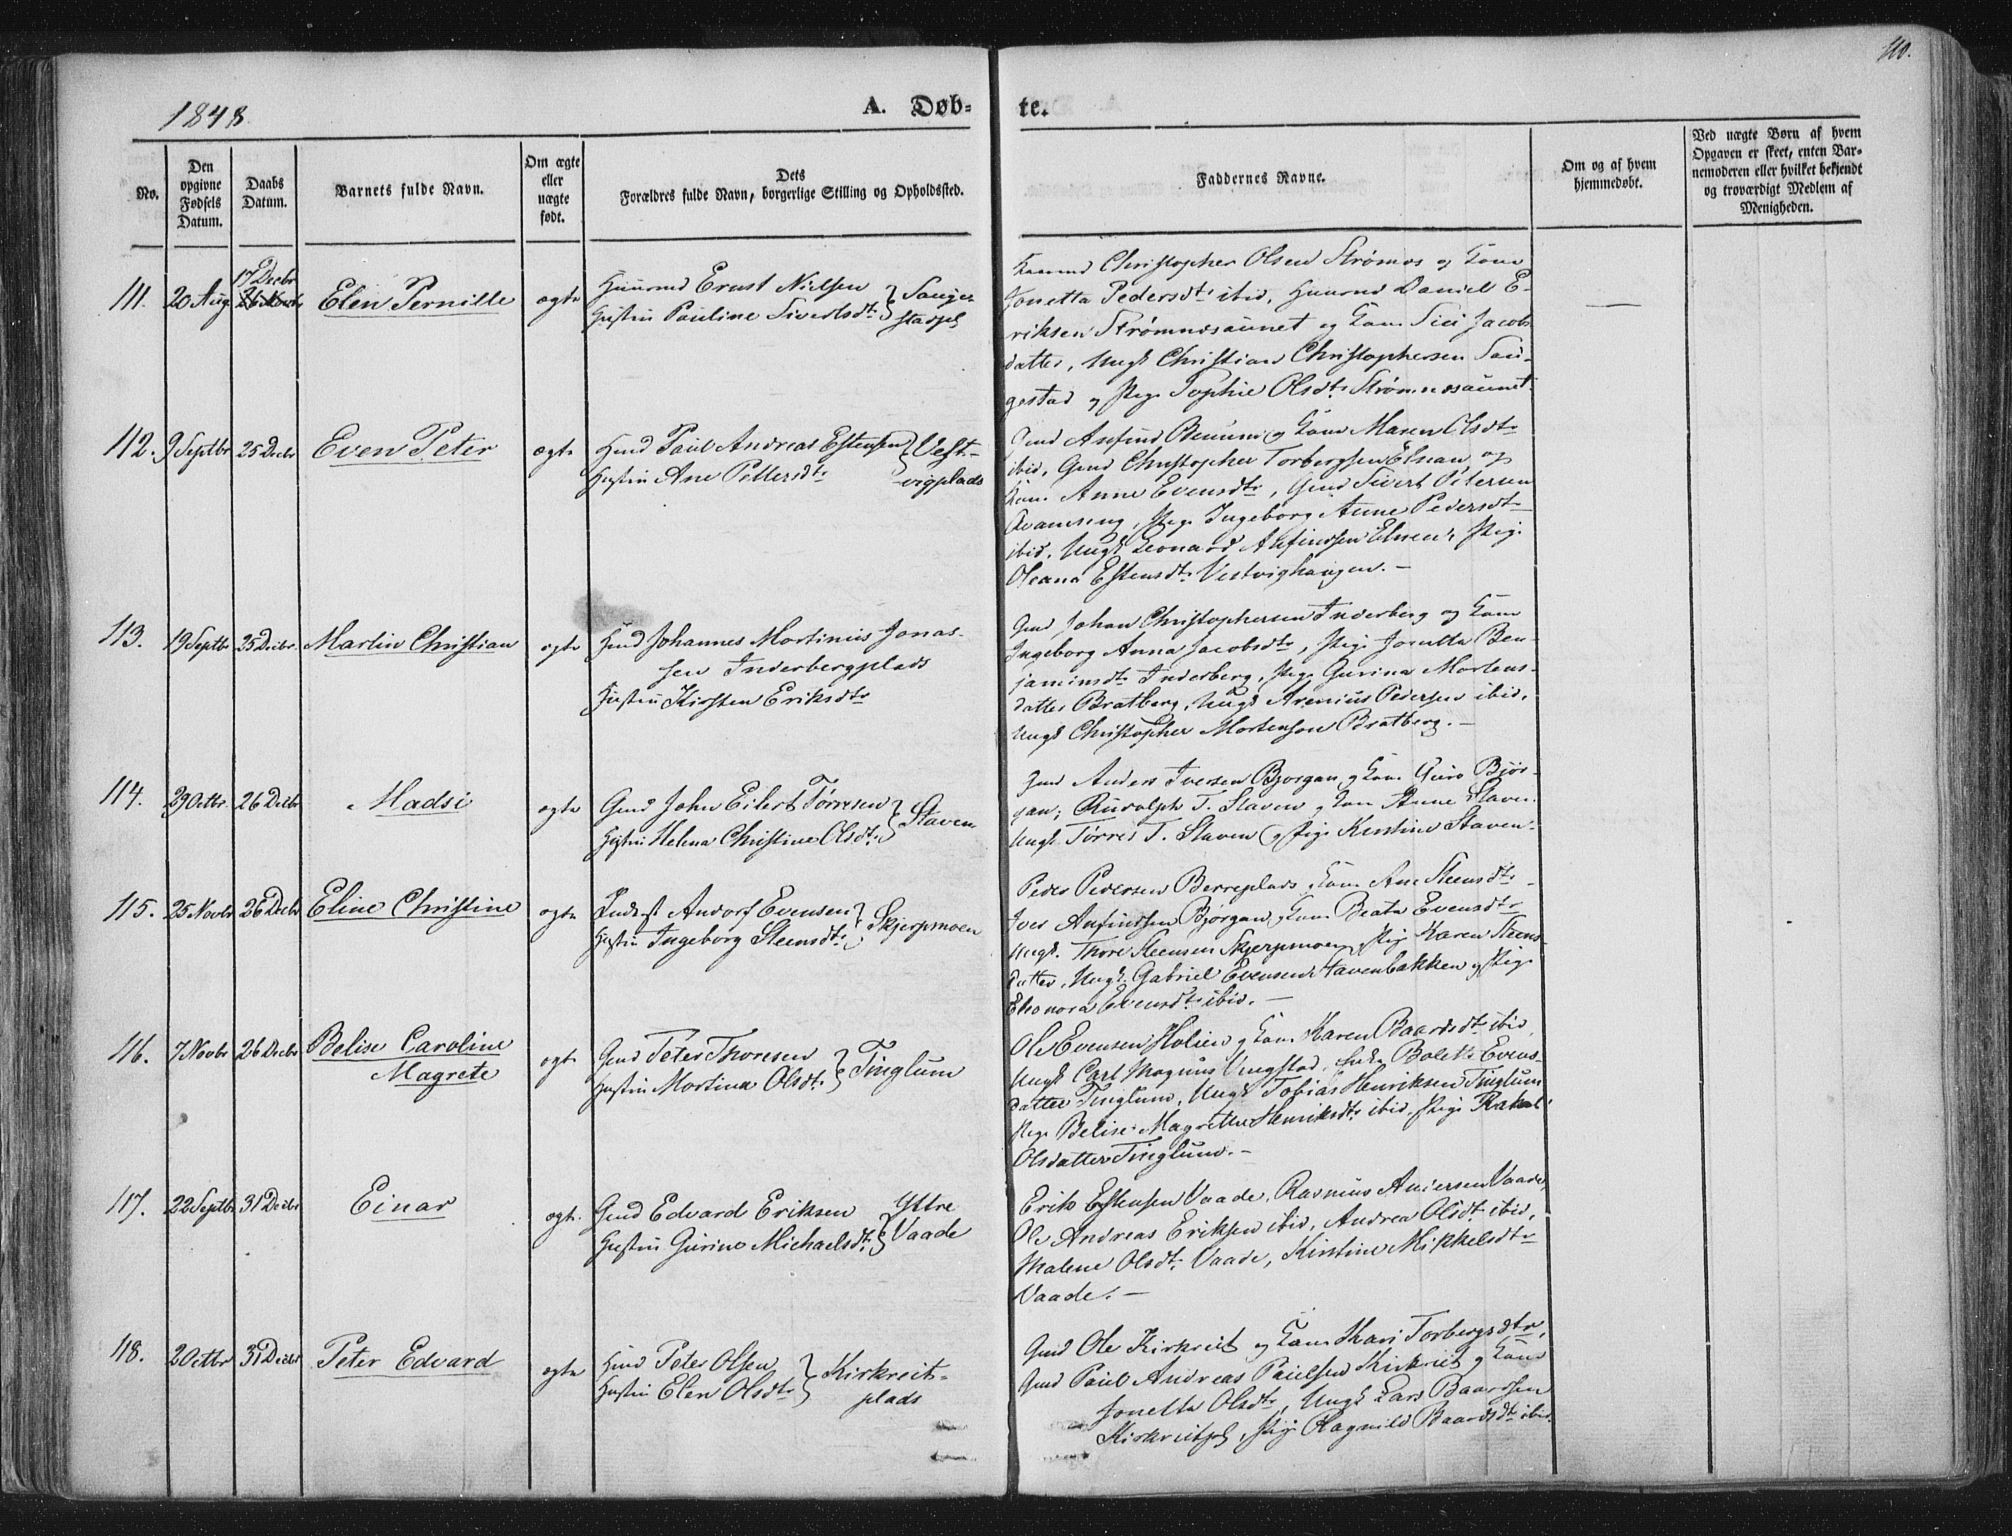 110.
1848
A. Døb-
te.
No.
Den opgivne Fødsels Datum.
Daabs Datum.
Barnets fulde Navn.
Om ægte eller uægte født.
Dets
Forældres fulde Navn, borgerlige Stilling og Opholdssted.
Faddernes Navne.
Om og af hvem hjemmedøbt.
Ved uægte Børn af hvem Opgaven er skeet, enten Barnemoderen eller hvilket bekjendt og troværdigt Medlem af Menigheden.
111. 20 Aug. 17 Decbr Elen Pernille ægte
Huusmd Ernst Nielsen
Hustru Pauline Sivertsdtr } Sauge-
stadpl
Christopher Olsen Strømos og Kone
Jonetta Pedersdtr ibid, Huusmd Daniel E-
riksen Strømnesaunet og Kone Siri Jacobs
datter, Ungk Christian Christophersen Sau-
gestad og Pige Sophie Olsdtr Strømnesaunet
112. 9 Septbr 25 Decbr Even Peter ægte
Hmd Paul Andreas Estensen } Vest-
Hustru Ane Pettersdtr vigplads
Gmd Anfind Benum og Kone Maren Olsdtr
ibid, Gmd Christopher Torbergsen Elnan og
Kone Anne Evensdtr, Gmd Sivert Petersen
Kvamseng, Pige Ingeborg Anne Pedersdtr
ibid, Ungk Leonard Anfindsen Elnan, Pige
Oleana Estensdtr Vestvighaugen. —
113. 19 Septbr 25 Decbr. Martin Christian ægte
Hmd Johannes Martinus Jonas-
sen Inderbergplads
Hustru Kirsten Eriksdtr
Gmd Johan Christophersen Inderberg og Kone
Ingeborg Anna Jacobsdtr, Pige Jonetta Ben-
jaminsdtr Inderberg, Pige Gurina Mortens-
datter Bratberg, Ungk Arenius Pedersen ibid,
Ungk Christopher Mortensson Bratberg. —
114. 29 Octbr. 26 Decbr Madsi ægte
Gmd John Eilert Tørresen } Staven
Hustru Helena Christine Olsdtr
Gmd Anders Iversen Bjørgan og Kone Guro Bjør-
gan; Rudolph T. Staven og Kone Anne Staven
Ungk Tørres T. Staven og Pige Kirstine Staven.
115. 25 Novbr 26 Decbr Eline Christine ægte
Inderst Andorf Evensen } Skjerpmoen
Hustru Ingeborg Steensdtr
Peder Pedersen Berreplads, Kone Ane Steensdtr
Iver Anfindsen Bjørgan, Kone Beata Evensdtr
Ungk. Thore Steensen Skjerpmoen, Pige Karen Steens-
datter, Ungk. Gabriel Evensen Stavenbakken og Pige
Elonora Evensdtr ibid. —
116. 7 Novbr 26 Decbr Belise Caroline
Magrete ægte
Gmd Peter Thoresen } Tinglum
Hustru Martina Olsdtr
Ole Evensen Holien og Kone Karen Baardsdtr ibid,
Ungk Carl Magnus Vengstad, Bolette Evens-
datter Tinglum, Ungk Tobias Henriksen Tinglum
Pige Belise Magrethe Henriksdtr ibid, Pige Rakel
Olsdatter Tinglum. —
117. 22 Septbr 31 Decbr Einar ægte
Gmd Edvard Eriksen } Yttre
Hustru Gurine Michaelsdtr Vaade
Erik Estensen Vaade, Rasmus Andersen Vaade,
Ole Andreas Eriksen ibid, Andrea Olsdtr ibid,
Malene Olsdtr Vaade, Kirstine Mikkelsdtr
Vaade. —
118. 2 Octbr 31 Decbr Peter Edvard ægte
Hmd Peter Olsen } Kirkreit-
Hustru Elen Olsdtr plads
Gmd Ole Kirkreit og Kone Kari Torbergsdtr,
Gmd Paul Andreas Paulsen Kirkreit og Kone
Jonetta Olsdtr, Ungk Lars Baardsen
Kirkreitpl, Pige Ragnild Baardsdtr ibid